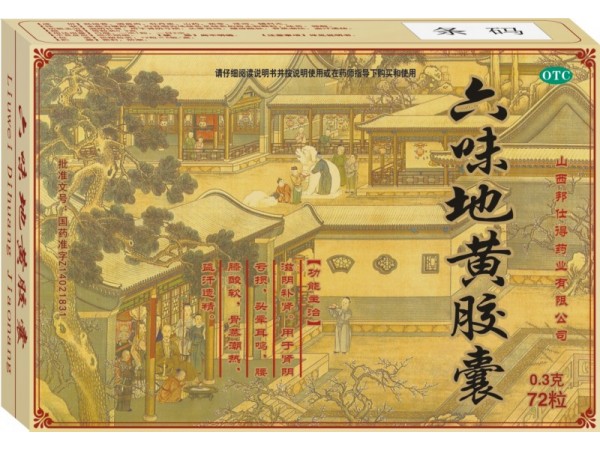 条 码
请仔细阅读说明书并按说明使用或在药师指导下购买和使用
OTC
六味地黄胶囊
山西邦仕得药业有限公司
0.3克
72粒
【功能主治】
滋阴补肾。用于肾阴
亏损，头晕耳鸣，腰
膝酸软，骨蒸潮热，
盗汗遗精。
批准文号：国药准字Z14021831
六味地黄胶囊
Liuwei Dihuang Jiaonang